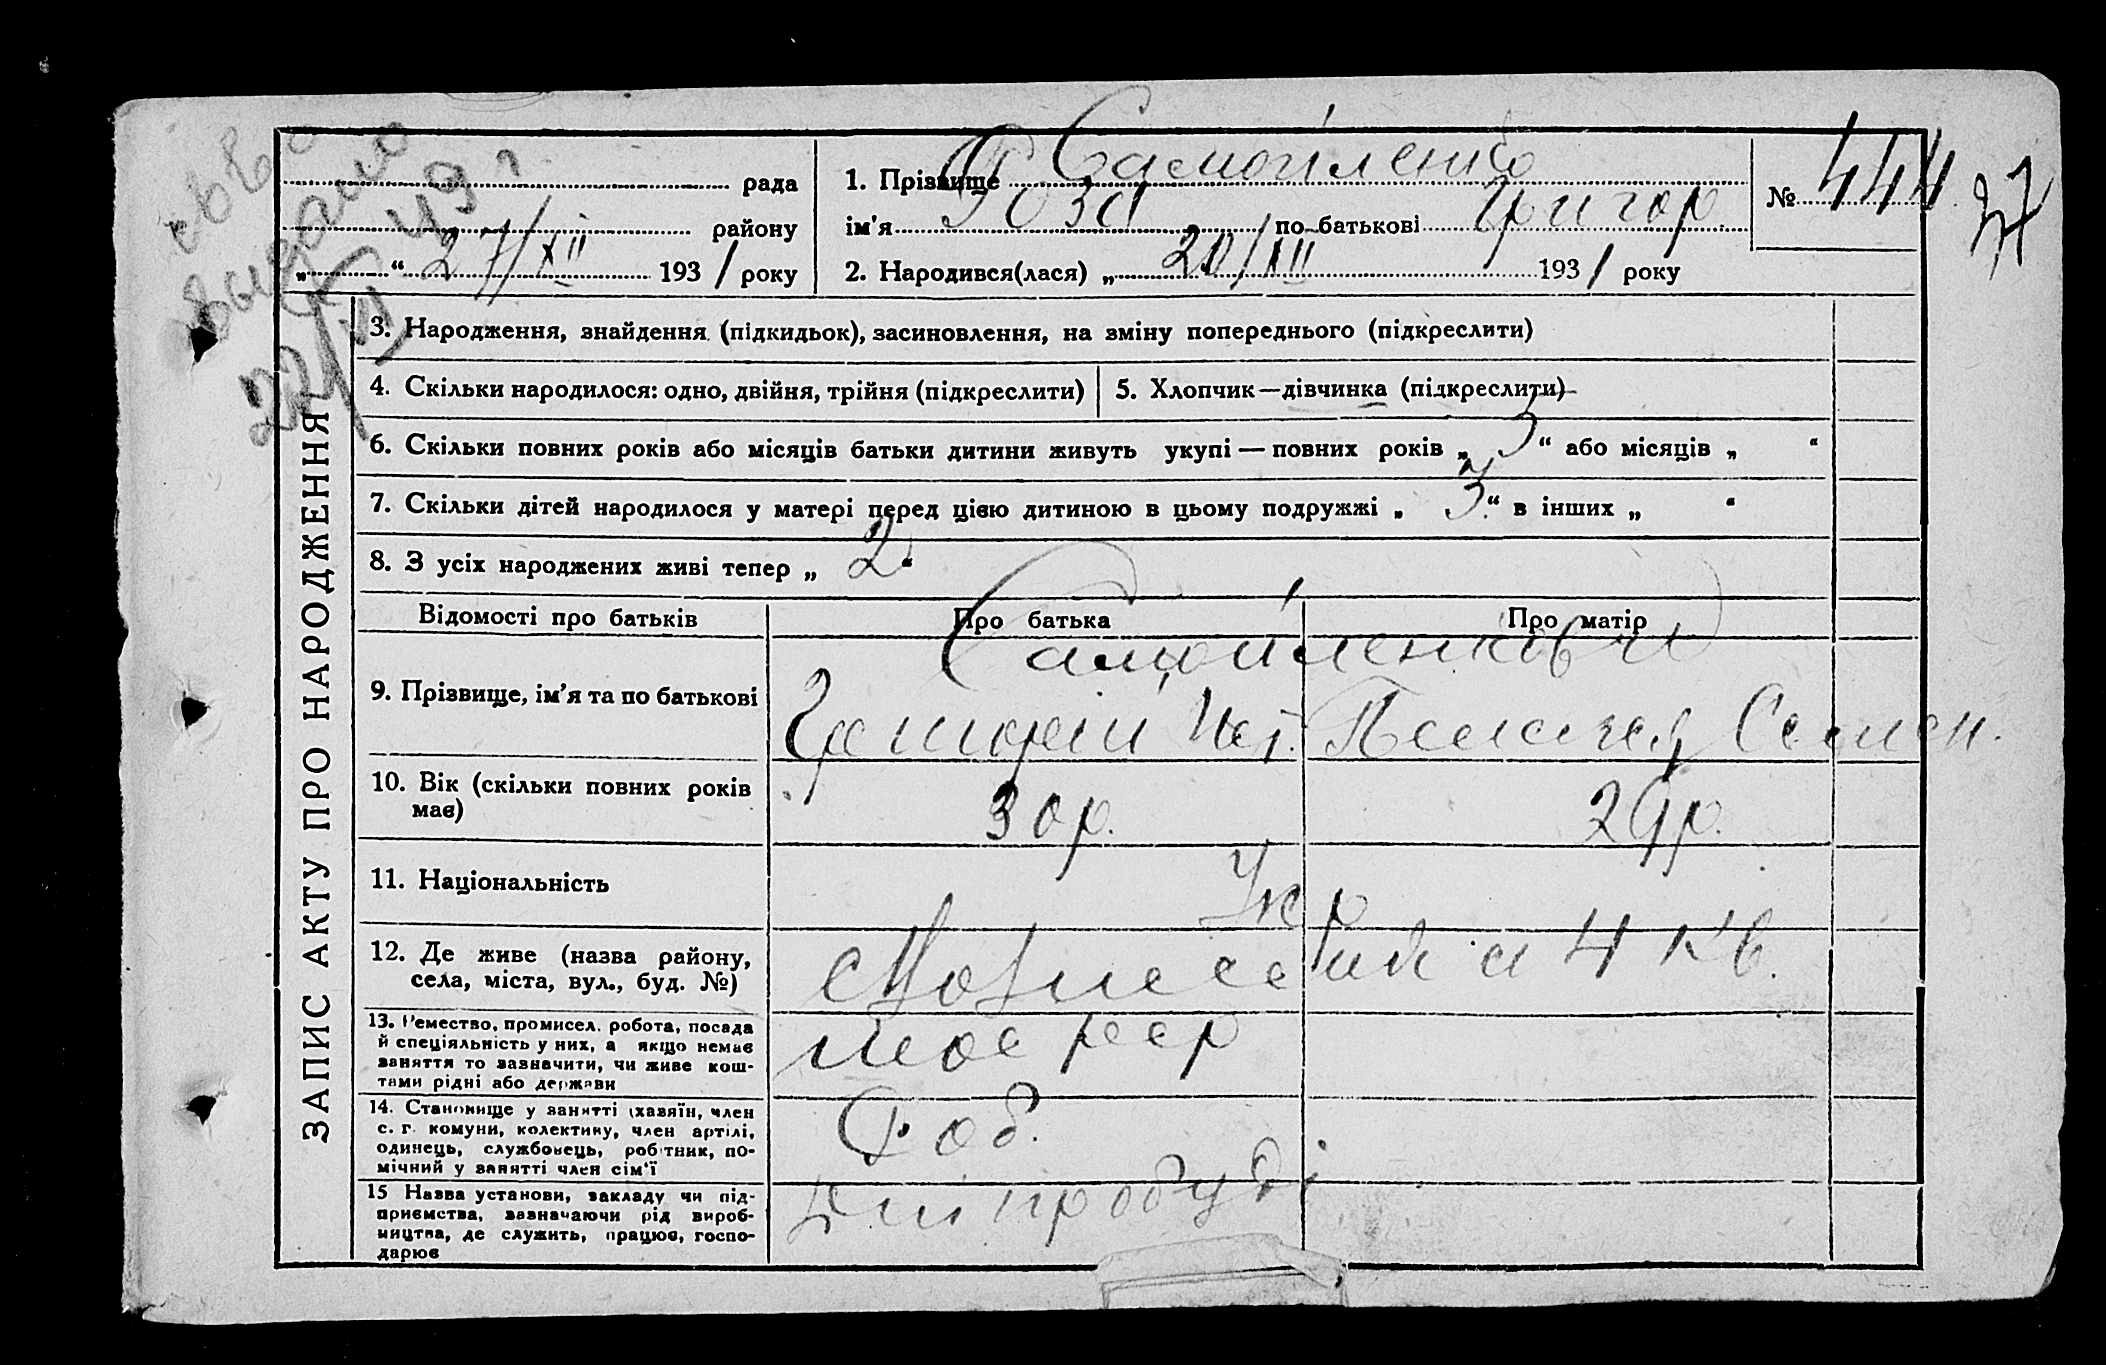 видано
22/VI 49 г
рада
району
„ “ 27/XII 1931 року
1. Прізвище Самойленко
ім’я Роза по батькові Григор.
2. Народився(лася) „ 20/XII 1931 року
№ 444
37
ЗАПИС АКТУ ПРО НАРОДЖЕННЯ
3. Народження, знайдення (підкидьок), засиновлення, на зміну попереднього (підкреслити)
4. Скільки народилося: одно, двійня, трійня (підкреслити)
5. Хлопчик—дівчинка (підкреслити)
6. Скільки повних років або місяців батьки дитини живуть укупі — повних років „ 3 “ або місяців „ “
7. Скільки дітей народилося у матері перед цією дитиною в цьому подружжі „ 3 “ в інших „ “
8. З усіх народжених живі тепер „ 2 “
Відомості про батьків
Про батька
Про матір
9. Прізвище, ім’я та по батькові
Самойленкови
Григорій
Пелагея Семен.
10. Вік (скільки повних років
має)
30 р.
29 р.
11. Національність
Укр
12. Де живе (назва району,
села, міста, вул., буд. №)
4 кв.
13. Ремество, промисел, робота, посада
й спеціяльність у них, а якщо немає
заняття то зазначити, чи живе кош-
тами рідні або держави
14. Становище у занятті (хазяїн, член
с. г. комуни, колективу, член артілі,
одинець, службовець, робітник, по-
мічний у занятті член сім’ї
Роб.
15 Назва установи, закладу чи під-
приємства, зазначаючи рід вироб-
ництва, де служить, працює, госпо-
дарює
Дніпробуді